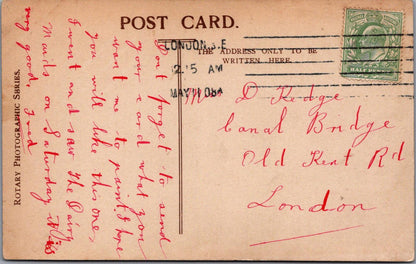 POST CARD.
THE ADDRESS ONLY TO BE
WRITTEN HERE.
LONDON. S.E
12.15 AM
MAY 11 08
HALFPENNY
Dont forget to send
your card what you
want me to paint I hope
you will like this one,
I went and saw The Dairy
Maids on Saturday it is
very good, Fred
D Kedge
Canal Bridge
Old Kent Rd
London
ROTARY PHOTOGRAPHIC SERIES.